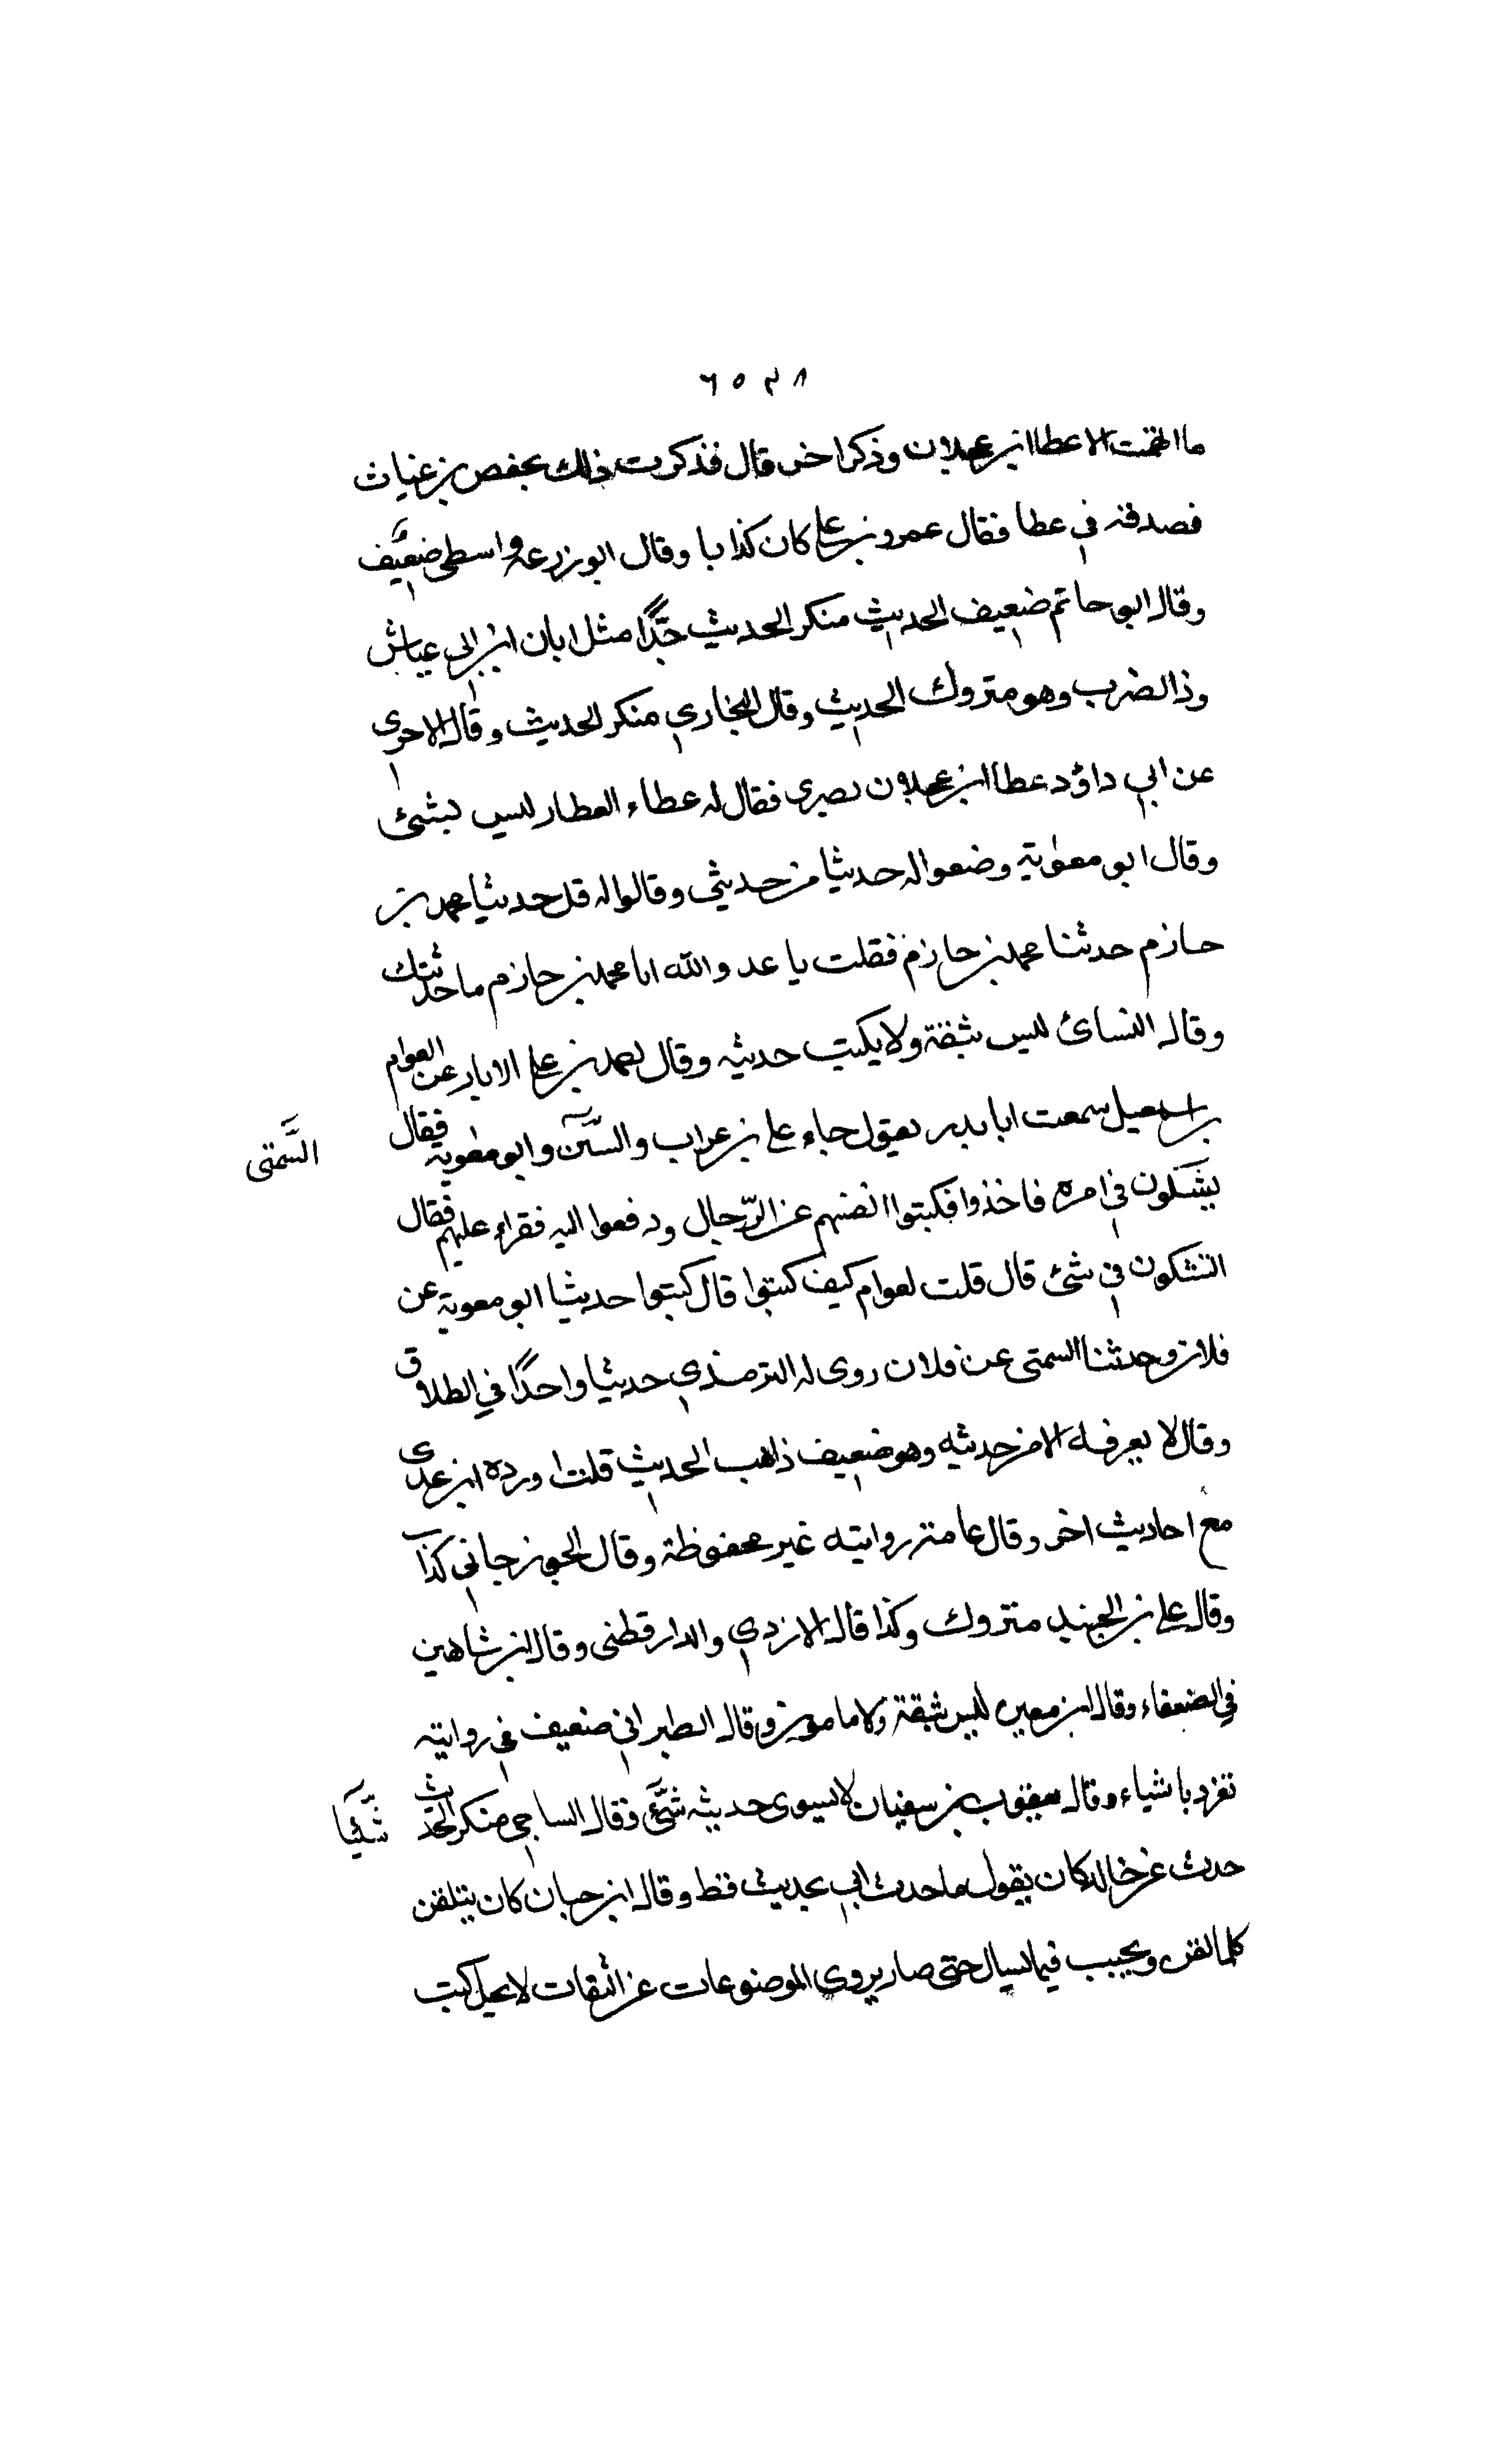 ما اتهمت الا عطا ابن عجلان وذكر اخر قال فذكرت ذلك بحفص بن غياث
فصدقه في عطا فقال عمرو بن علي كان كذابا وقال ابو زرعه واسطي ضعيف
وقال ابو حاتم ضعيف الحديث منكر الحديث جدًا مثل ابان ابن ابي عياش
وذا الضرب وهو متروك الحديث وقال البخاري منكر الحديث وقال الاجرى
عن ابي داؤد عطا ابن عجلان بصرى فقال له عطاء العطار ليس بشئ
وقال ابو معوية وضعوا له حديثا من حديثي وقالوا له قل حدثنا محمد بن
حازم حدثنا محمد بن حازم فقلت يا عدو الله انا محمد بن حازم ما حدثتك
وقال النسائ ليس بثقة ولا يكتب حديثه وقال احمد بن علي الابار عن العوام
بن اسمعيل سمعت ابا بدر يقول جاء علي بن غراب والسمتى وابو معوية فقال
يشكون في امره فاخذوا فكتبوا انفسهم عن الرّجال ودفعوا اليه فقراء عليهم فقال
اتشكون في شئ قال قلت لعوام كيف كتبوا قال كتبوا حدثنا ابو معوية عن
فلان وحدثنا السمتى عن فلان روى له الترمذي حديثا واحدًا في الطلاق
وقال لا يعرفه الا من حديثه وهو ضعيف ذاهب الحديث قلت اورده ابن عدى
مع احاديث اخر وقال عامة رواىته غير محفوظة وقال الجوزجاني كذاب
وقال علي بن الجنيد متروك وكذا قال الازدي والدارقطنى وقال ابن شاهين
في الضعفاء وقال ابن معين ليس بثقة ولا مامون وقال الطبراني ضعيف في روايته
تفرد باشياء وقال يعقوب بن سفيان لا يسوى حديثه شئ وقال الساجي منكر الحديث
حدث عن خالد كان يقول ما حدث ابي بحديث قط وقال ابن حبان كان يتلقن
كلما لقن ويجيب فيما يسال حتى صار يروى الموضوعات عن الثقات لا يحل كتب
السَّمتى
شيئا